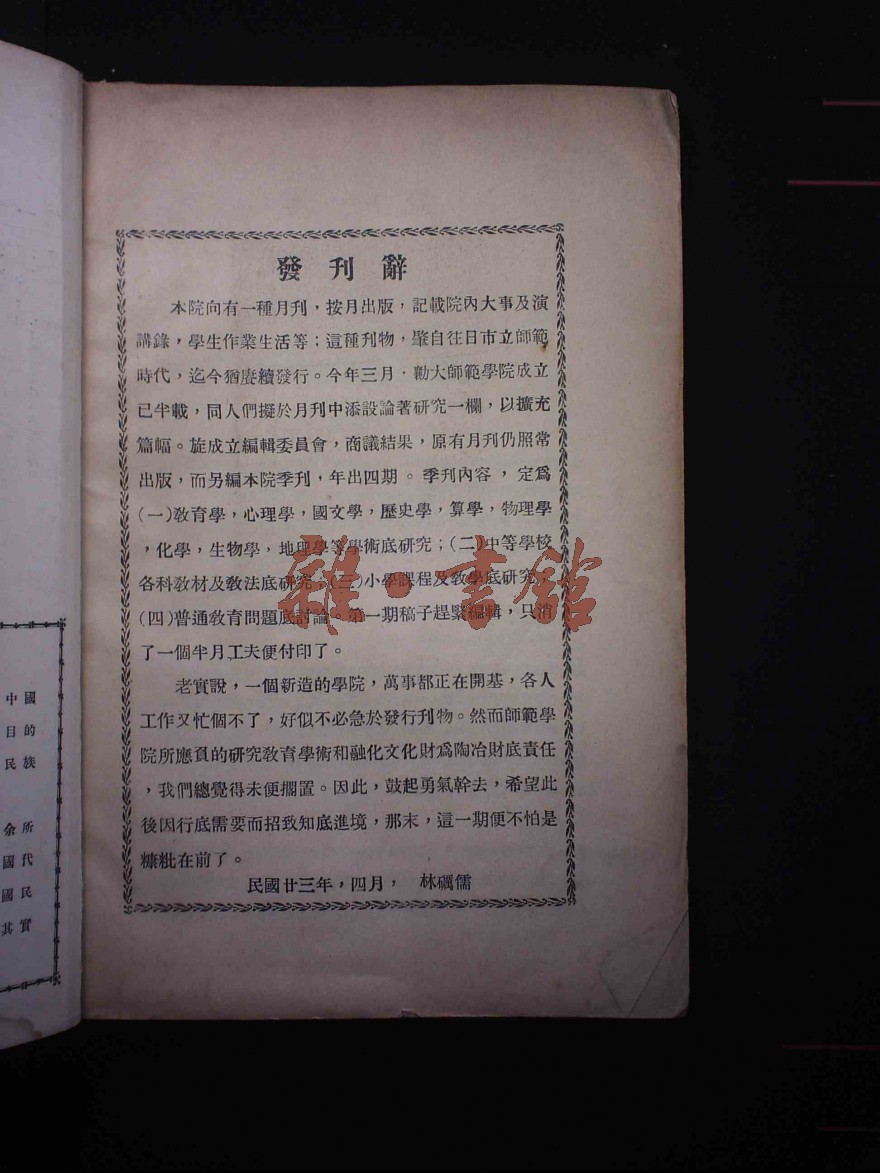 發刊辭
本院向有一種月刊，按月出版，記載院內大事及演
講錄，學生作業生活等；這種刊物，肇自往日市立師範
時代，迄今猶賡續發行。今年三月·勷大師範學院成立
已半載，同人們擬於月刊中添設論著研究一欄，以擴充
篇幅。旋成立編輯委員會，商議結果，原有月刊仍照常
出版，而另編本院季刊，年出四期。季刊內容，定爲
(一)教育學，心理學，國文學，歷史學，算學，物理學
，化學，生物學，地理學等學術底研究；(二)中等學校
各科教材及教法底研究；(三)小學課程及教學底研究；
(四)普通教育問題底討論。第一期稿子趕緊編輯，只消
了一個半月工夫便付印了。
老實說，一個新造的學院，萬事都正在開基，各人
工作又忙個不了，好似不必急於發行刊物。然而師範學
院所應負的研究教育學術和融化文化財爲陶冶財底責任
，我們總覺得未便擱置。因此，鼓起勇氣幹去，希望此
後因行底需要而招致知底進境，那末，這一期便不怕是
糠粃在前了。
民國廿三年，四月，　林礪儒
雜·書館
中國
目的
民族
余所
國代
國民
其實